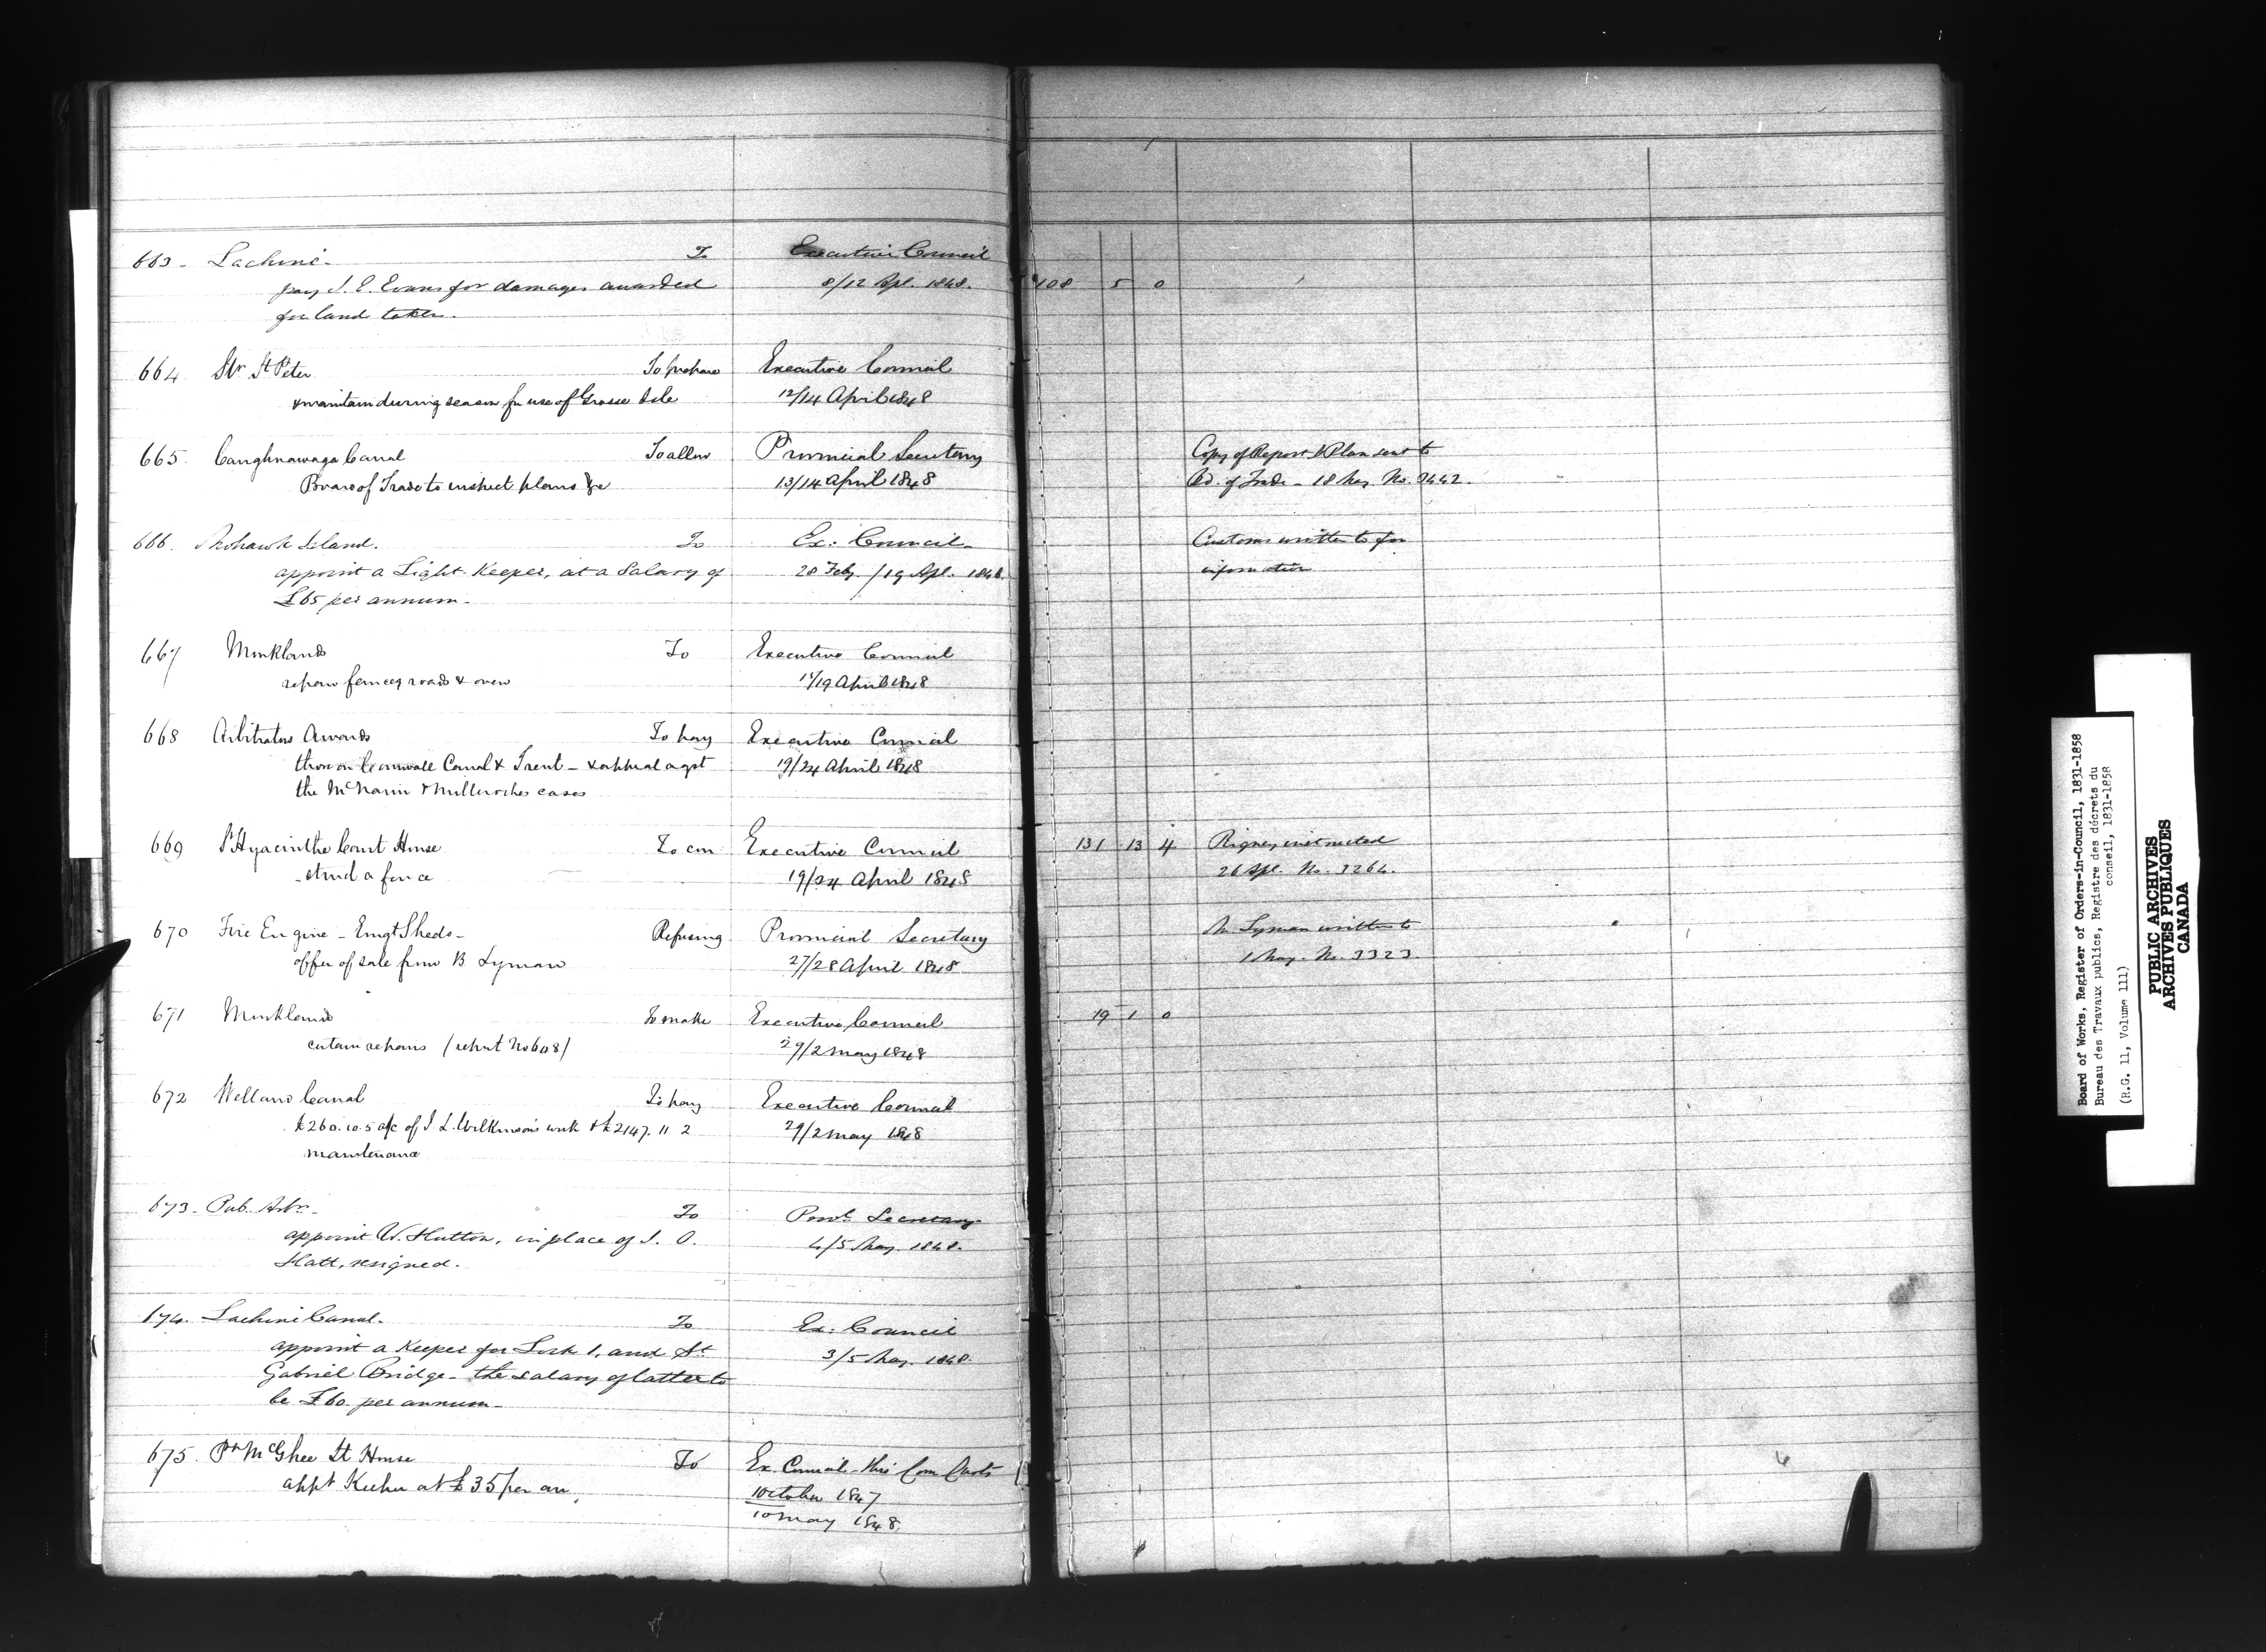 663 - Lachine - To Executive Council
pay J. E. Evans for damages awarded 8/12 Apl. 1848. 108 5 0
for land taken.
664 Str. St Peter To prepare Executive Council
& maintain during season for use of Grosse Isle 12/14 April 1848
665. Caughnawaga Canal To allow Provincial Secretary Copy of Report & Plan sent to
Board of Trade to inspect plans &c 13/14 April 1848 Bd. of Trade - 18 May No. 3442.
666. Mohawk Island. To Ex: Council - Customs written to for
appoint a Light-Keeper, at a Salary of 28 Feby. / 19 Apl. 1848. information
£65 per annum -
667 Monklands To Executive Council
repair fences roads & oven /19 April 1848
668 Arbitrators Awards To pay Executive Council
those on Cornwall Canal & Trent - & appeal agst 19/24 April 1848
the & Milleroches cases
669 St Hyacinthe Court House To con Executive Council 131 13 4 Rigney instructed
-struct a fence 19/24 April 1848 26 Apl. No. 3264.
670 Fire Engine - Emgt Sheds - Refusing Provincial Secretary Mr. Lyman written to
offer of sale from B Lyman 27/28 April 1848 1 May. No. 3323.
671 Monklands To make Executive Council 19 1 0
certain repairs (report No 608) 29/2 May 1848
672 Welland Canal To pay Executive Council
£260.10.5 a/c of J. L. Wilkinson's work & £2147. 11 2 29/2 May 1848
maintenance
673 - Pub. - To Provl. Secretary
appoint W. Hutton, in place of J. O. 4/5 May. 1848.
Hatt, resigned.
674. Lachine Canal. To Ex: Council
appoint a Keeper for Lock 1, and St. 3/5 May. 1848.
Gabriel Bridge - the salary of latter to
be £60 per annum -
675. Pt McGhee Lt House To Ex. Council - thro' Com
appt Keeper at £35 per an. 1 October 1847
10 May 1848.
Board of Works, Register of Orders-in-Council, 1831-1858
Bureau des Travaux publics, Registre des décrets du
conseil, 1831-1858
(R.G. 11, Volume 111)
PUBLIC ARCHIVES
ARCHIVES PUBLIQUES
CANADA